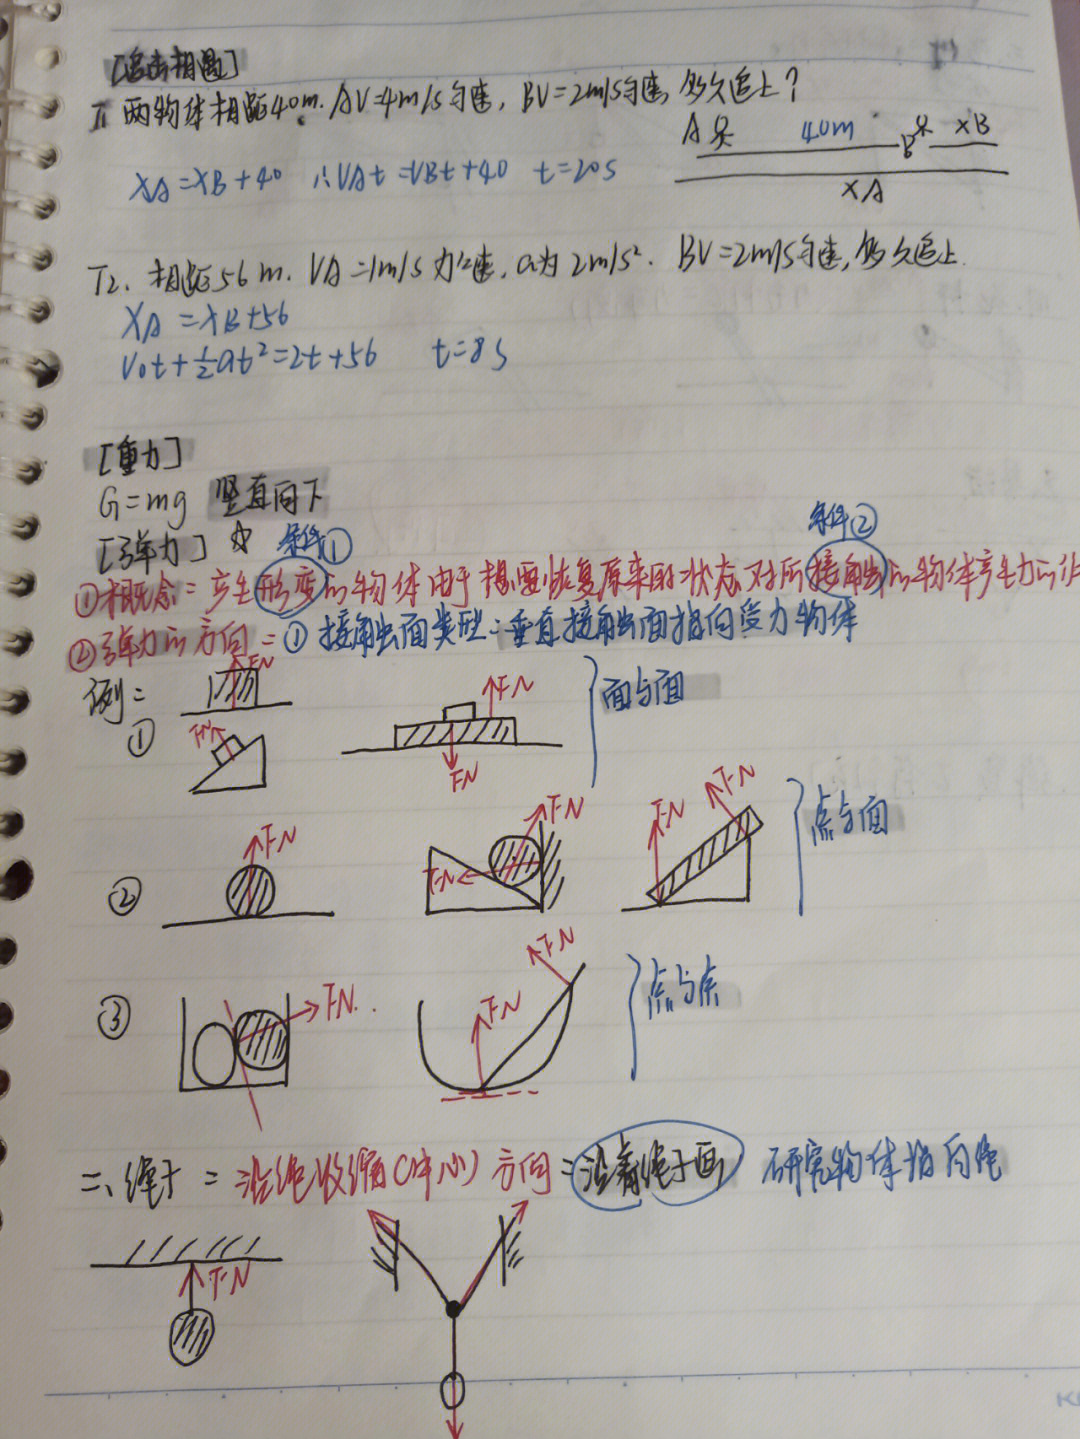 [追击相遇]
T1 两物体相距40m. AV=4m/s匀速, BV=2m/s匀速, 多久追上?
A 40m B XB
XA=XB+40 ∴VAt=VBt+40 t=20s
XA
T2. 相距56m. VA=1m/s 加速, a为2m/s². BV=2m/s匀速, 多久追上.
XA=XB+56
V0t+½at²=2t+56 t=8s
[重力]
G=mg 竖直向下
[弹力] ☆ 条件① 条件②
①概念=产生形变的物体由于想要恢复原来的状态对所接触的物体产生力的作
②弹力的方向=①接触面类型:垂直接触面指向受力物体
例=
物 FN
① FN FN FN 面与面
② FN FN FN FN FN 点与面
③ FN. FN FN 点与点
二、绳子=沿绳收缩(中心)方向=沿着绳子画 研究物体指向绳
FN